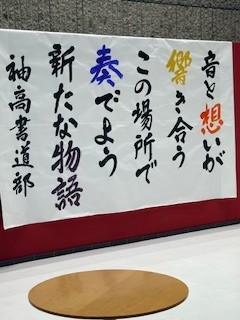 音と想いが
響き合う
この場所で
奏でよう
新たな物語
袖高書道部